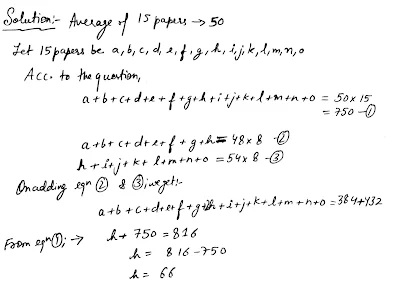 Solution:- Average of 15 papers → 50
Let 15 papers be a, b, c, d, e, f, g, h, i, j, k, l, m, n, o
Acc. to the question,
a+b+c+d+e+f+g+h+i+j+k+l+m+n+o = 50×15
= 750 -①
a+b+c+d+e+f+g+h= 48×8 -②
h+i+j+k+l+m+n+o = 54×8 -③
On adding eqn ② & ③, we get:-
a+b+c+d+e+f+g+2h+i+j+k+l+m+n+o = 384+432
From eqn ①; → h+750 = 816
h = 816-750
h = 66